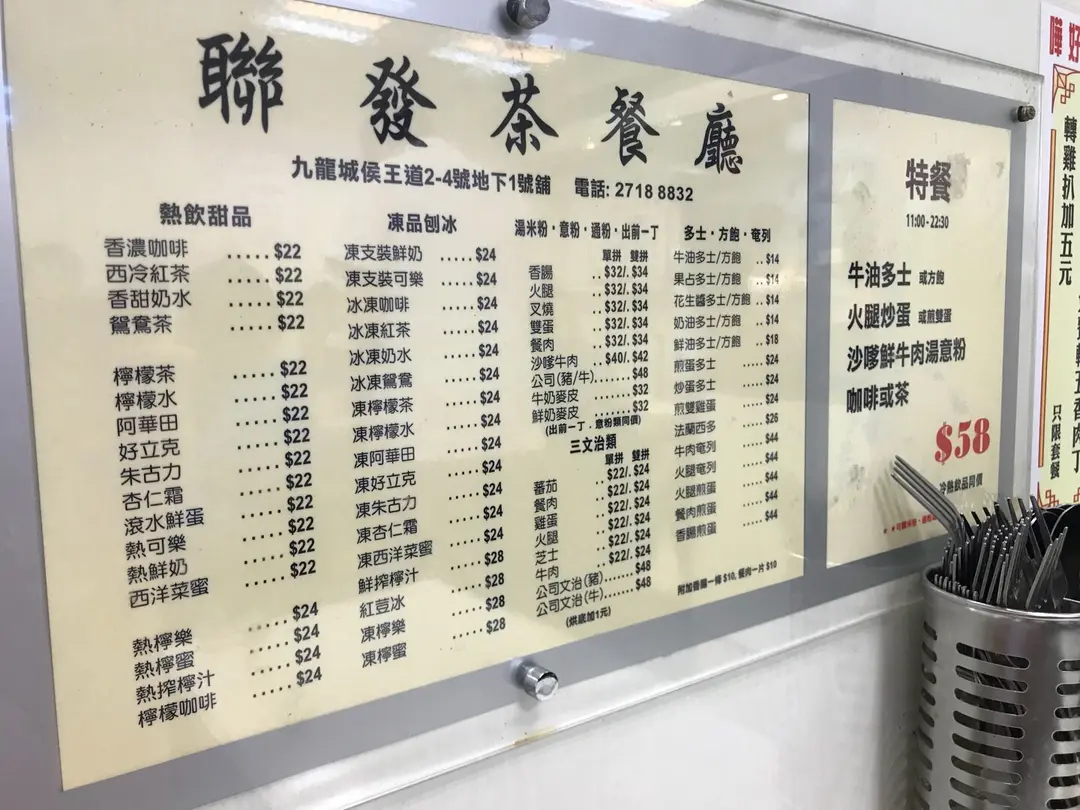 聯發茶餐廳
九龍城侯王道2-4號地下1號舖 電話: 2718 8832
熱飲甜品
香濃咖啡 ..... $22
西冷紅茶 ..... $22
香甜奶水 ..... $22
鴛鴦茶 ..... $22
檸檬茶 ..... $22
檸檬水 ..... $22
阿華田 ..... $22
好立克 ..... $22
朱古力 ..... $22
杏仁霜 ..... $22
滾水鮮蛋 ..... $22
熱可樂 ..... $22
熱鮮奶 ..... $22
西洋菜蜜 ..... $22
熱檸樂 ..... $24
熱檸蜜 ..... $24
熱搾檸汁 ..... $24
檸檬咖啡 ..... $24
凍品刨冰
凍支裝鮮奶 ..... $24
凍支裝可樂 ..... $24
冰凍咖啡 ..... $24
冰凍紅茶 ..... $24
冰凍奶水 ..... $24
冰凍鴛鴦 ..... $24
凍檸檬茶 ..... $24
凍檸檬水 ..... $24
凍阿華田 ..... $24
凍好立克 ..... $24
凍朱古力 ..... $24
凍杏仁霜 ..... $24
凍西洋菜蜜 ..... $24
鮮搾檸汁 ..... $28
紅荳冰 ..... $28
凍檸樂 ..... $28
凍檸蜜 ..... $28
湯米粉・意粉・通粉・出前一丁
單拼 雙拼
香腸 ..$32/. $34
火腿 ..$32/. $34
叉燒 ..$32/. $34
雙蛋 ..$32/. $34
餐肉 ..$32/. $34
沙嗲牛肉 ..$40/. $42
公司(豬/牛)....... $48
牛奶麥皮 ....... $32
鮮奶麥皮 ....... $32
(出前一丁．意粉類同價)
三文治類
單拼 雙拼
蕃茄 ..$22/. $24
餐肉 ..$22/. $24
雞蛋 ..$22/. $24
火腿 ..$22/. $24
芝士 ..$22/. $24
牛肉 ..$22/. $24
公司文治(豬)...... $48
公司文治(牛)...... $48
(烘底加1元)
多士・方飽・奄列
牛油多士/方飽 ..$14
果占多士/方飽 ..$14
花生醬多士/方飽 ..$14
奶油多士/方飽 ..$14
鮮油多士/方飽 ..$18
煎蛋多士 ....$24
炒蛋多士 ....$24
煎雙雞蛋 ....$24
法蘭西多 ....$26
牛肉奄列 ....$44
火腿奄列 ....$44
火腿煎蛋 ....$44
餐肉煎蛋 ....$44
香腸煎蛋 ....$44
附加香腸一條 $10, 餐肉一片 $10
特餐
11:00 - 22:30
牛油多士 或方飽
火腿炒蛋 或煎雙蛋
沙嗲鮮牛肉湯意粉
咖啡或茶
$58
冷熱飲品同價
轉雞扒加五元
只限套餐